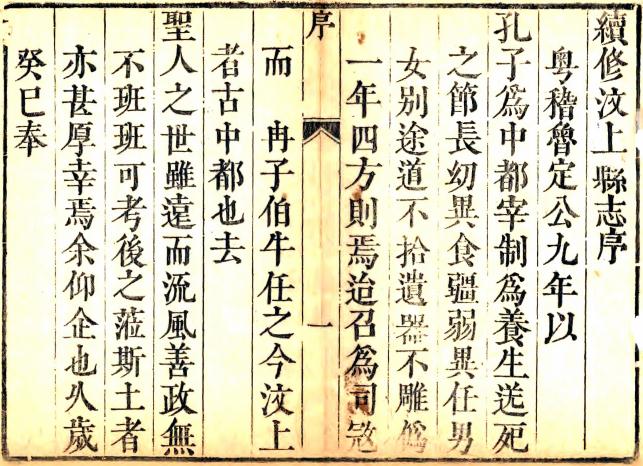 續修汶上縣志序
粵稽魯定公九年以
孔子為中都宰制為養生送死
之節長幼異食疆弱異任男
女別途道不拾遺器不雕偽
一年四方則焉迨召為司寇
序
一
而 冉子伯牛任之今汶上
者古中都也去
聖人之世雖遠而流風善政無
不班班可考後之蒞斯土者
亦甚厚幸焉余仰企也久歲
癸巳奉